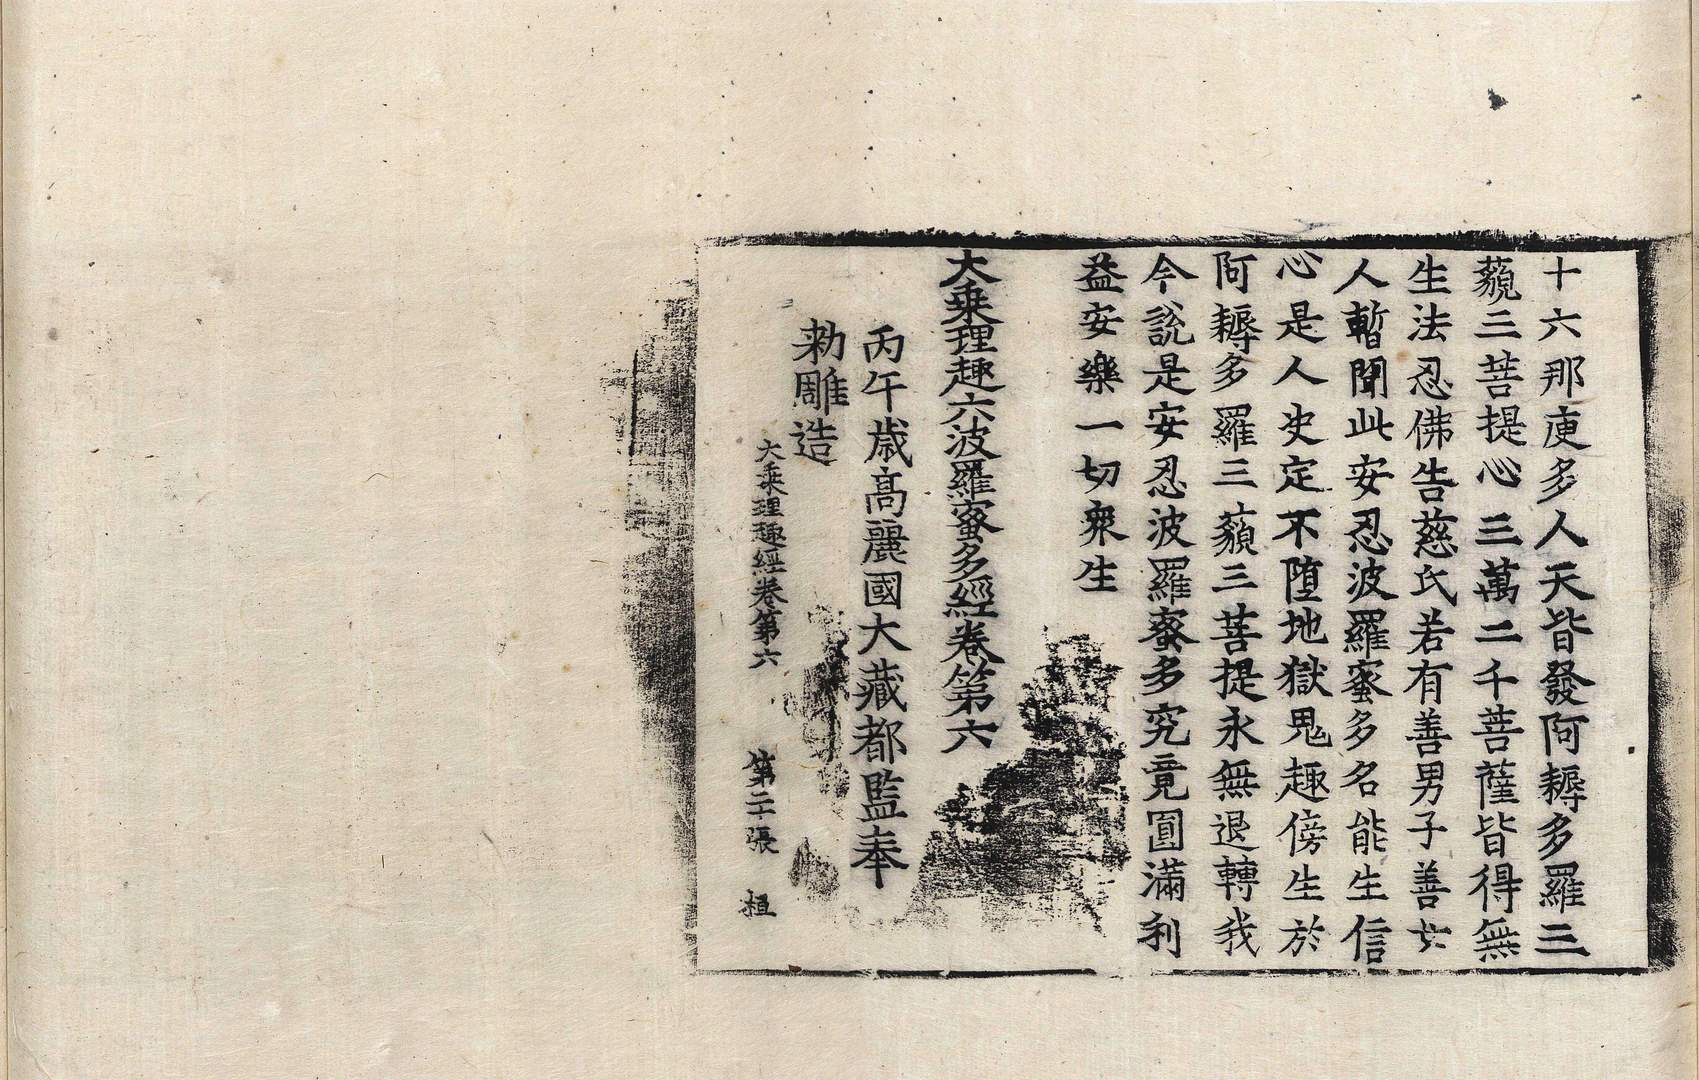 十六那庾多人天皆發阿耨多羅三
藐三菩提心三萬二千菩薩皆得無
生法忍佛告慈氏若有善男子善女
人暫聞此安忍波羅蜜多名能生信
心是人史定不墮地獄鬼趣傍生於
阿耨多羅三藐三菩提永無退轉我
今說是安忍波羅蜜多究竟圓滿利
益安樂一切衆生
大乘理趣六波羅蜜多經卷第六
丙午歲高麗國大藏都監奉
勅雕造
大乘理趣經卷第六 第二十張 桓